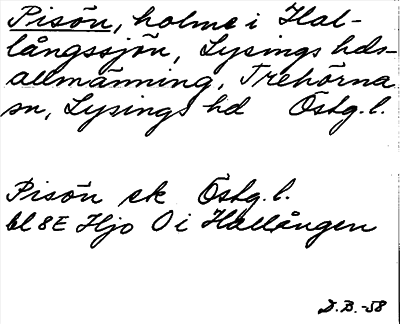 Pisön, holme i Hal-
långssjön, Lysings hds-
allmänning, Trehörna
sn, Lysings hd Östg. l.
Pisön ek Östg. l.
bl 8E Hjo O i Hallången
D.B.-58